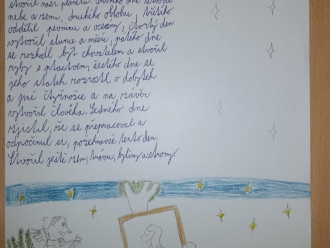 stvořil naši planetu. Prvního dne stvořil
nebe a zemi, druhého oblohu, třetího
oddělil pevninu a oceány, čtvrtý den
vytvořil slunce a měsíc, pátého dne
se rozhodl být chovatelem a stvořil
ryby s ptactvem, šestého dne se
jeho statek rozrostl o dobytek
a jiné čtyřnožce a na závěr
vytvořil člověka. Sedmého dne
zjistil, že se přepracoval a
odpočinul si, požehnavše tento den.
Stvořil ještě zem, trávu, byliny a stromy.